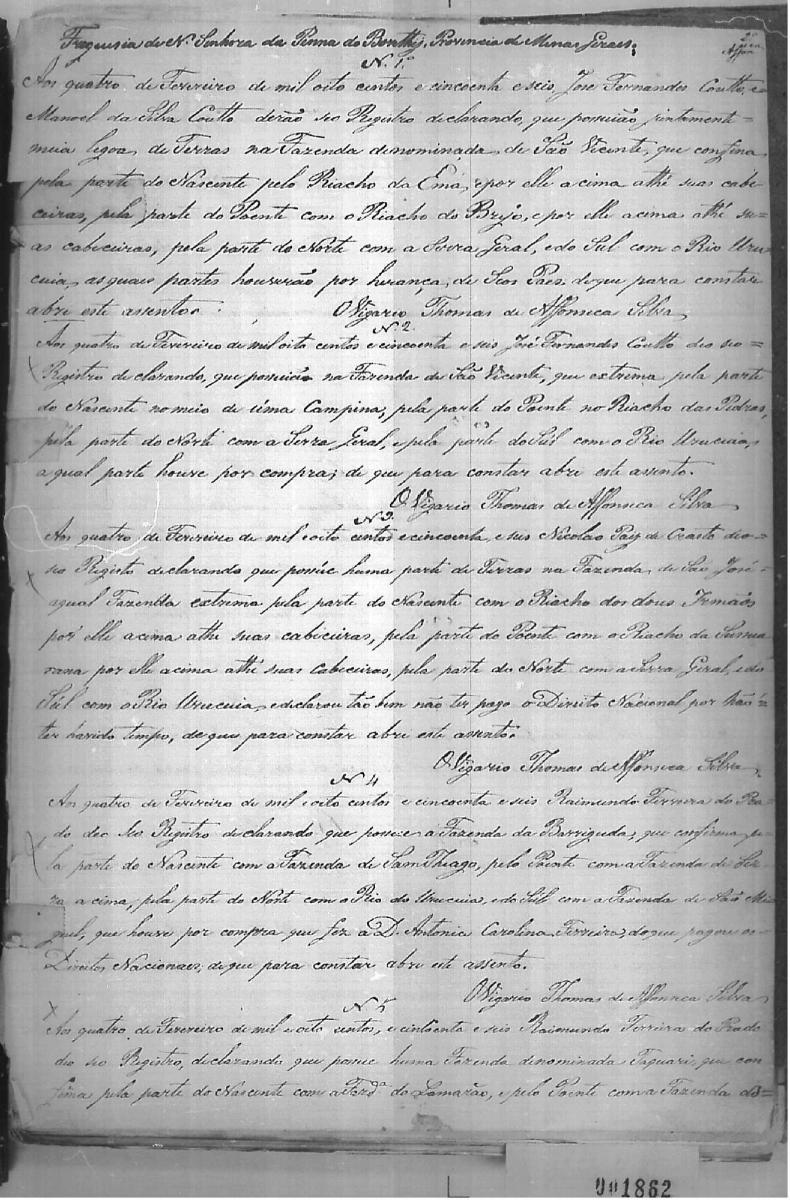 Freguesia de N. Senhora da Penna do Buritty, Provincia de Minas Geraes;
N. 1º
Aos quatro de Fevereiro de mil oito centos e cincoenta e seis José Fernandes Coutto, e
Manoel da Silva Coutto derão seo Registro declarando, que possuião juntamente
meia legoa de Terras na Fazenda denominada de São Vicente, que confina
pela parte do Nascente pelo Riacho da Ema, e por elle acima athé suas cabe-
ceiras, pela parte do Poente com o Riacho do Brejo, e por elle acima athé su-
as cabeceiras, pela parte do Norte com a Serra Geral, e do Sul com o Rio Uru-
cuia, as quais partes houverão por herança, de Seos Paes, de que para constar
abri este assento. O Vigario Thomas de Affonseca Silva
N. 2.
Aos quatro de Fevereiro de mil oito centos e cincoenta e seis José Fernandes Coutto deo seo
Registro declarando, que possuia na Fazenda de São Vicente, que extrema pela parte
do Nascente no meio de uma Campina, pela parte do Poente no Riacho das Pedras,
pela parte do Norte com a Serra Geral, e pela parte do Sul com o Rio Urucuia,
a qual parte houve por compra; de que para constar abri este assento.
O Vigario Thomas de Affonseca Silva
N 3.
Aos quatro de Fevereiro de mil e oito centos e cincoenta, e seis Nicolao Paiz de Crasto deo
seo Registo declarando que possúe huma parte de Terras na Fazenda de São José
a qual Fazenda extrema pela parte do Nascente com o Riacho dos dous Irmãos
por elle acima athé suas cabiceiras, pela parte do Poente com o Riacho da Sussua
rana por elle acima athé suas Cabeceiras, pela parte do Norte com a Serra Geral, e do
Súl com o Rio Urucuia, e declarou tão bem não ter pago o Direito Nacional por não
ter havido tempo, de que para constar abri este assento.
O Vigario Thomas de Affonseca Silva
N 4
Aos quatro de Fevereiro de mil e oito centos e cincoenta e seis Raimundo Ferreira do Pra-
do deo seo Registro declarando que possue a Fazenda da Barriguda, que confirma pe-
la parte do Nascente com a Fazenda de Sam Thiago, pelo Poente com a Fazenda de
ra a cima, pela parte do Norte com o Rio do Urucuia, e do Sul com a Fazenda de São Mi
guel, que houve por compra que fez a D. Antonia Carolina Ferreira, do que pagou os
Direitos Nacionaes; de que para constar abri este assento.
O Vigario Thomas de Affonseca Silva
N. 5
Aos quatro de Fevereiro de mil e oito centos, e cincoenta e seis Raimundo Ferreira do Prado
deo seo Registro, declarando que possue huma Fazenda denominada Taquari, que con
fina pela parte do Nascente com a Fazdª do Lamarão, e pelo Poente com a Fazenda do
001862